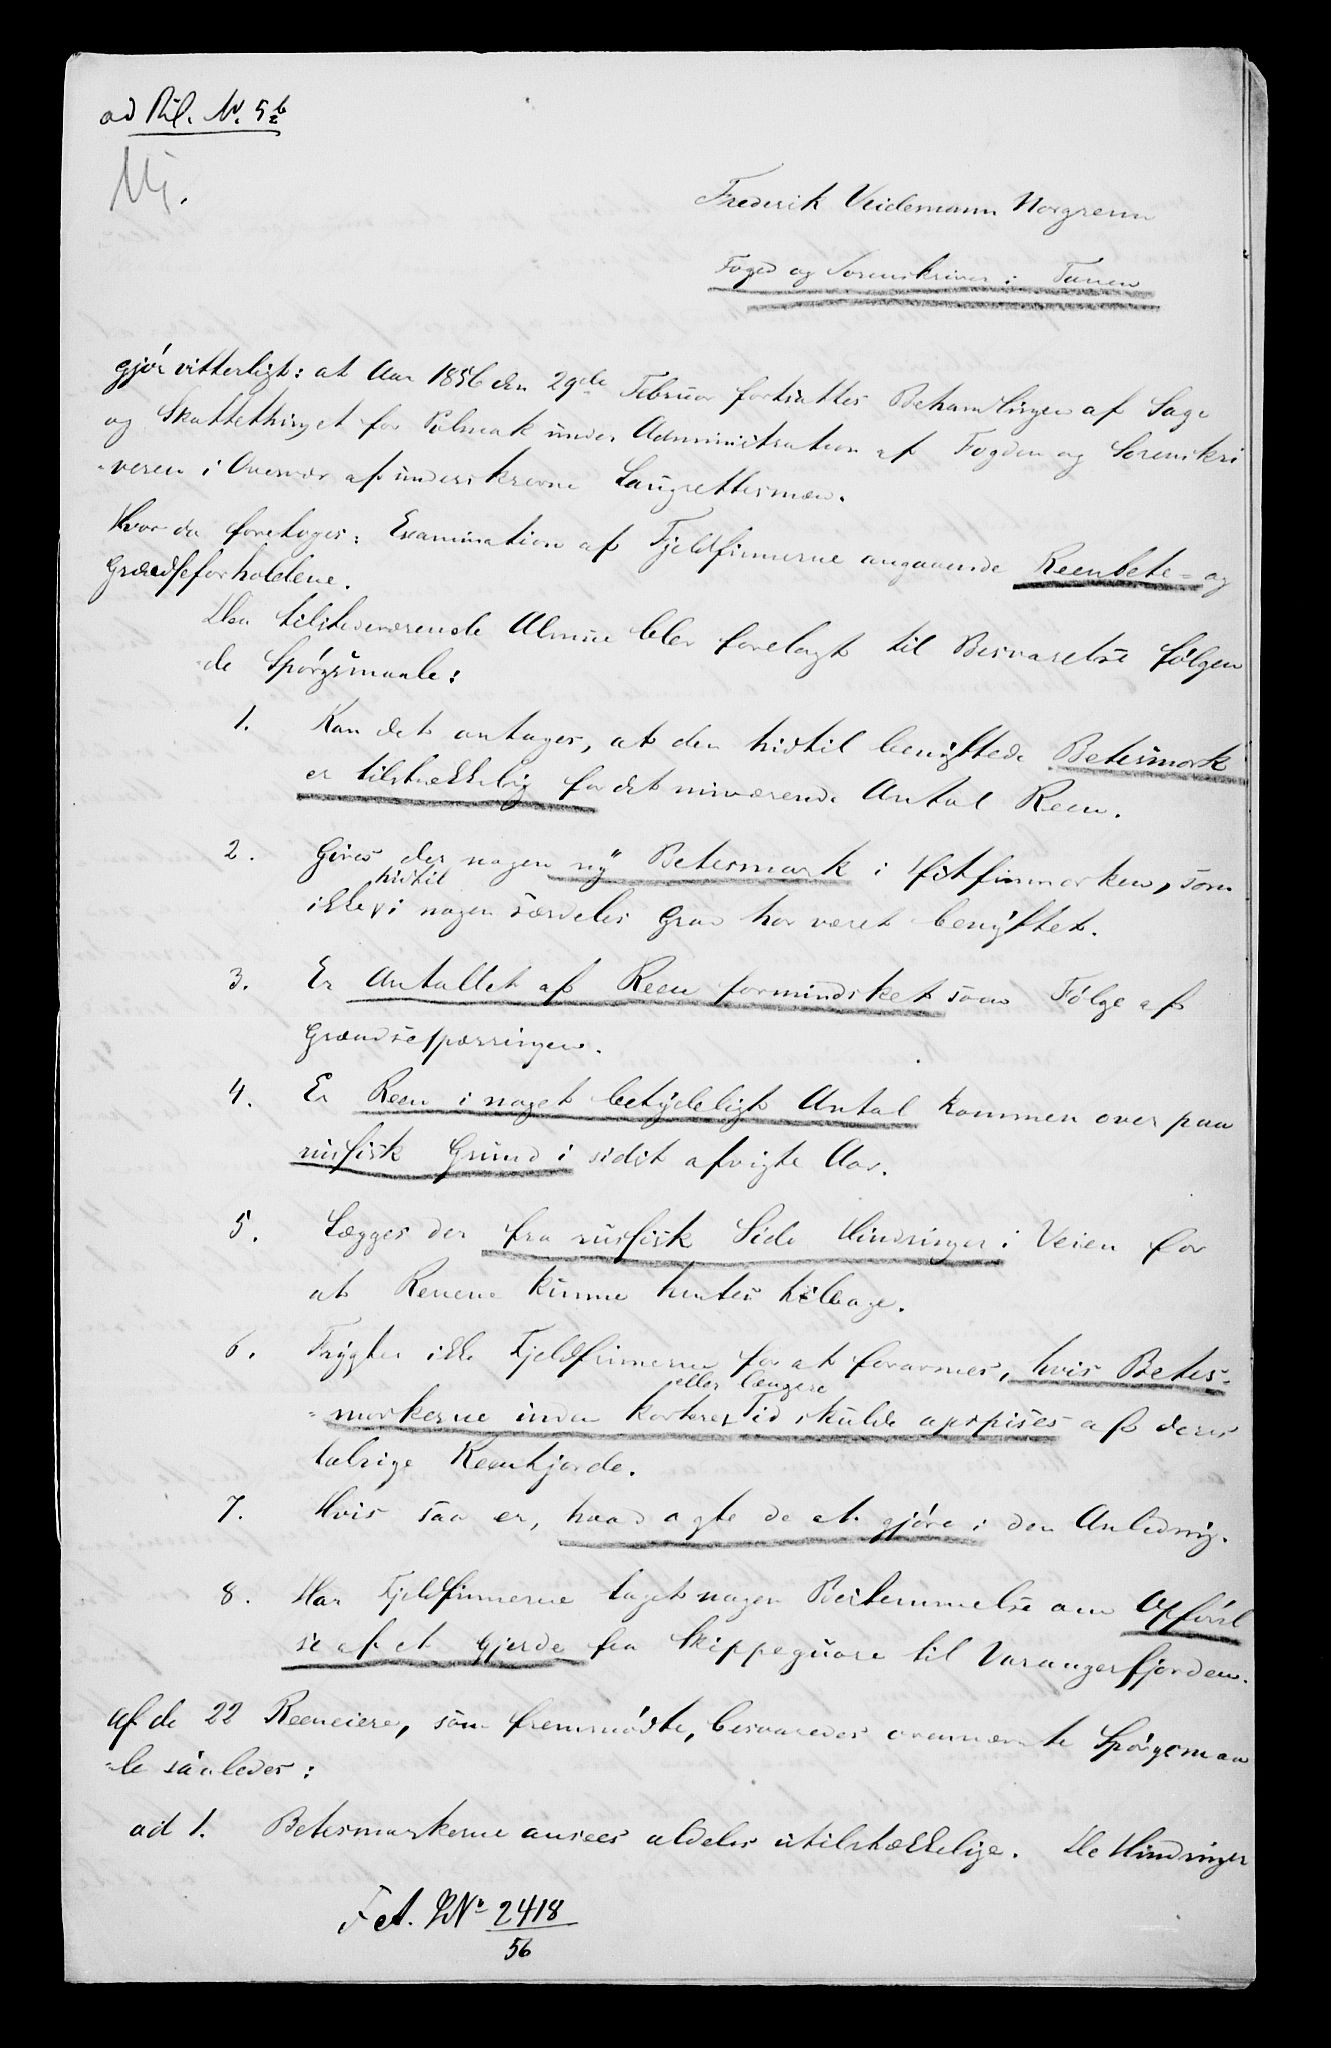 ad Bil. N. 5 b
Frederik Veidemann Norgrenn
Foged og Sorenskriver i Tanen
gjör vitterligt: at Aar 1856 den 29de Februar fortsattes Behandlingen af Sage
og Skattethinget for Polmak under Administration af Fogden og Sorenskri
-veren i Overvær af underskrevne Laugrettesmæn.
Hvor da foretoges: Examination af Fjeldfinnerne angaaende Reenbete- og
Grændseforholdene.
Den tilstedeværende Almue blev forelagt til Besvarelse følgen
-de Spörgsmaale:
1. Kan det antages, at den hidtil benyttede Betesmark
er tilstrækkelig for det nuværende Antal Reen.
2. Gives der nogen ny Betesmark i Østfinmarken, som
hidtil
ikke i nogen særdeles Grad har været benyttet.
3. Er Antallet af Reen formindsket som Fölge af
Grændsespærringen.
4. Er Reen i noget betydeligt Antal kommen over paa
russisk Grund i sidst afvigte Aar.
5. Lægges der fra russisk Side Hindringer i Veien for
at Renene kunne hentes tilbage.
6. Frygter ikke Fjeldfinnerne for at forarmes, hvis Betes-
eller længere
-markerne inden kortere Tid skulde opspises af deres
talrige Reenhjorde.
7. Hvis saa er, hvad agte de at gjöre i den Anledning.
8. Har Fjeldfinnerne taget nogen Bestemmelse om Opförel
se af et Gjerde fra Skippeguore til Varangerfjorden.
Af de 22 Reeneiere, som fremmödte, besvaredes ovennævnte Spörgsmaa
-le saaledes:
ad 1. Betesmarkerne ansees aldeles utilstrækkelige. De Hindringer
F. A. PN. 2418
56